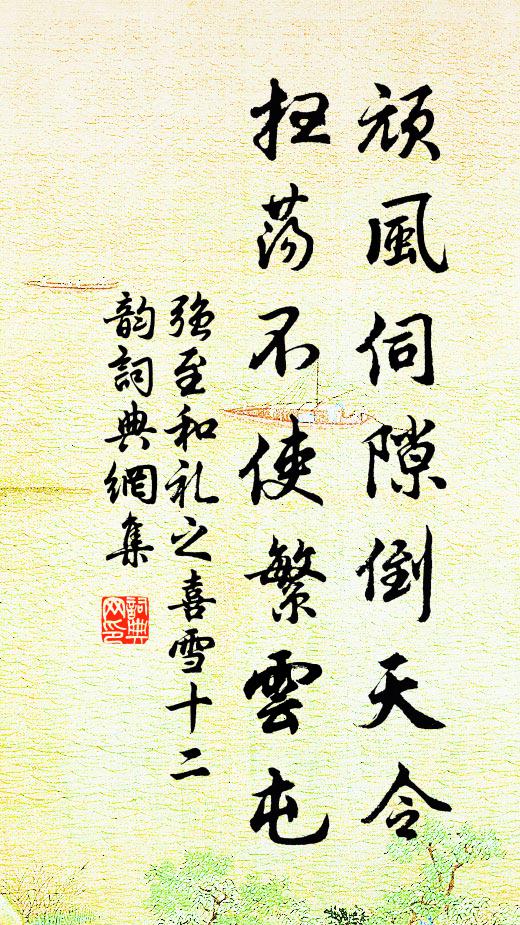 頑風伺隙倒天令
扫荡不使繁雲屯
强至和礼之喜雪十二
韵詞典網集
詞典網印